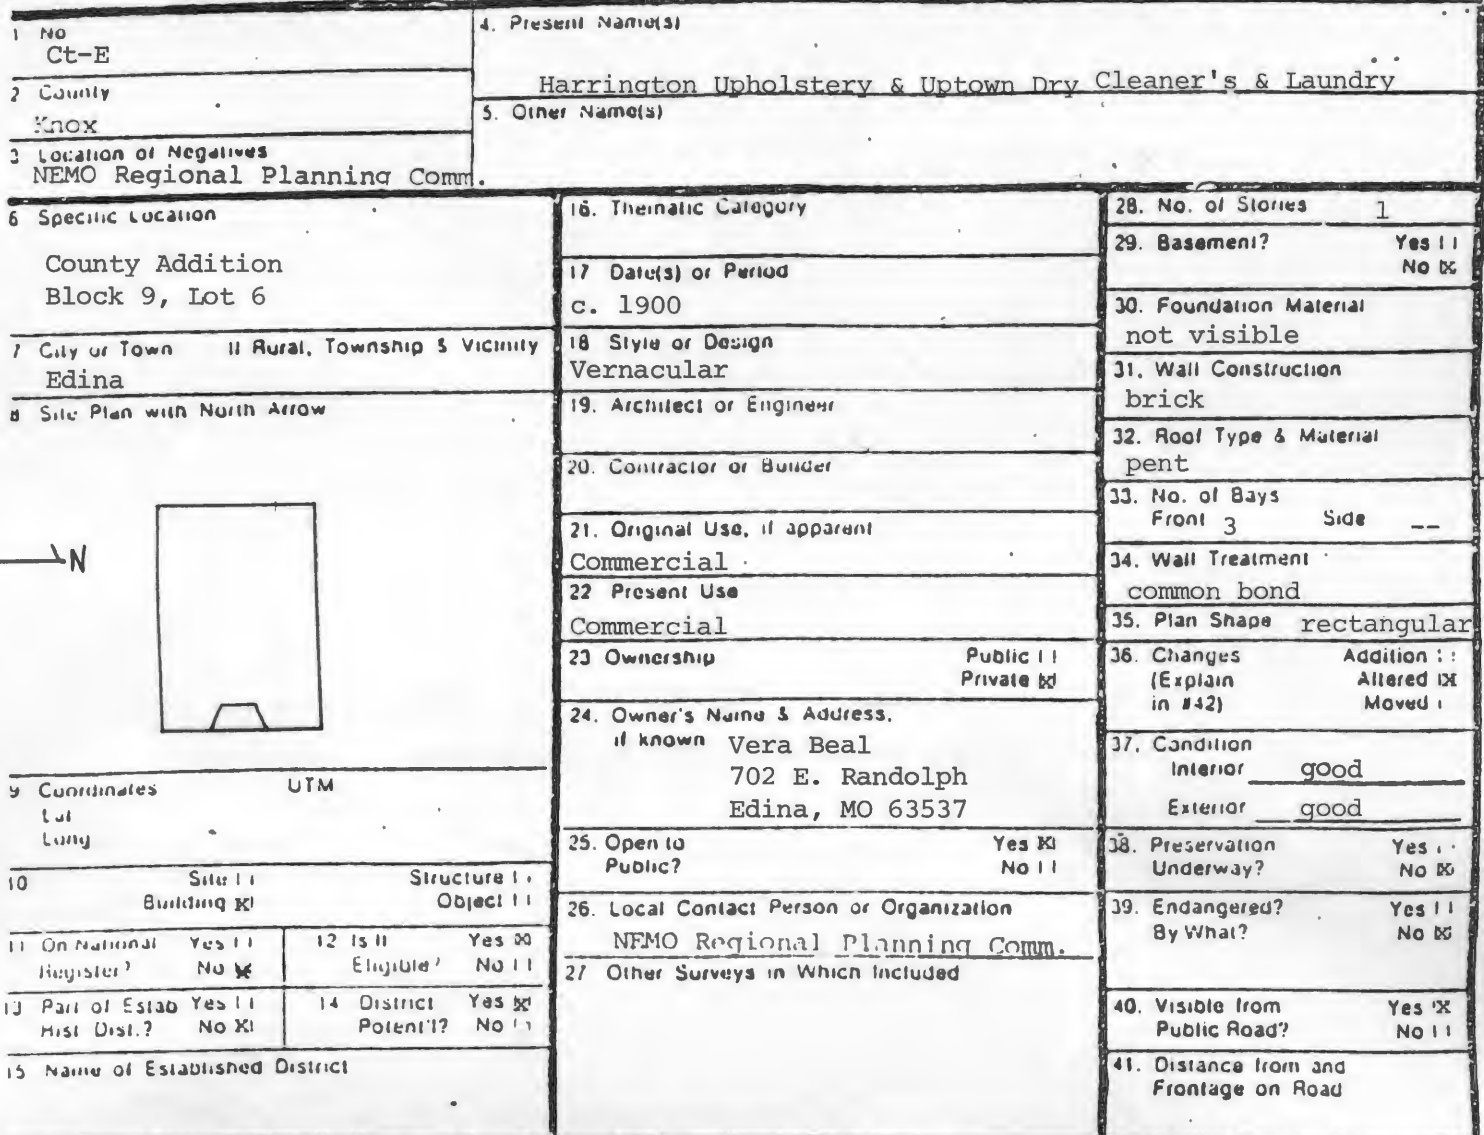 1 No
Ct-E
2 County
Knox
3 Location of Negatives
NEMO Regional Planning Comm.
4. Present Name(s)
Harrington Upholstery & Uptown Dry Cleaner's & Laundry
5. Other Name(s)
6 Specific Location
County Addition
Block 9, Lot 6
7 City or Town If Rural, Township & Vicinity
Edina
8 Site Plan with North Arrow
N
9 Coordinates UTM
Lat
Long
10 Site Structure
Building X Object
11 On National Yes
Register? No X
12 Is It Yes X
Eligible? No
13 Part of Estab Yes
Hist Dist.? No X
14 District Yes X
Potent'l? No
15 Name of Established District
16. Thematic Category
17 Date(s) or Period
c. 1900
18 Style or Design
Vernacular
19. Architect or Engineer
20. Contractor or Builder
21. Original Use, if apparent
Commercial
22 Present Use
Commercial
23 Ownership Public
Private X
24. Owner's Name & Address,
if known Vera Beal
702 E. Randolph
Edina, MO 63537
25. Open to Yes X
Public? No
26. Local Contact Person or Organization
NEMO Regional Planning Comm.
27 Other Surveys in Which Included
28. No. of Stories 1
29. Basement? Yes
No X
30. Foundation Material
not visible
31. Wall Construction
brick
32. Roof Type & Material
pent
33. No. of Bays
Front 3 Side --
34. Wall Treatment
common bond
35. Plan Shape rectangular
36. Changes Addition
(Explain Altered X
in #42) Moved
37. Condition
Interior good
Exterior good
38. Preservation Yes
Underway? No X
39. Endangered? Yes
By What? No X
40. Visible from Yes X
Public Road? No
41. Distance from and
Frontage on Road